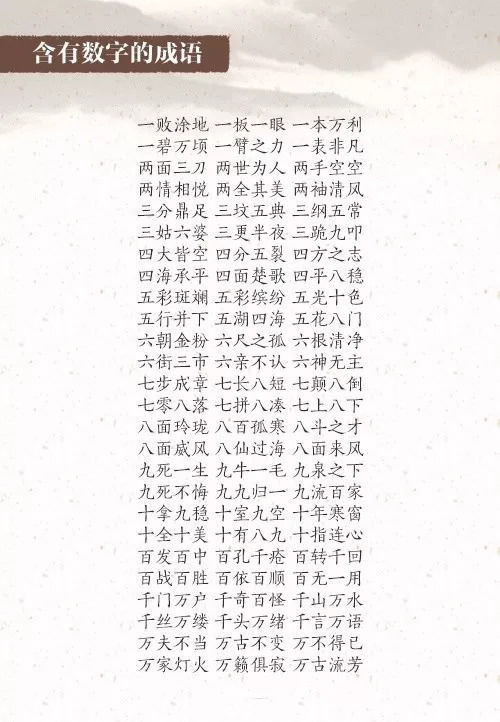 含有数字的成语
一败涂地 一板一眼 一本万利
一碧万顷 一臂之力 一表非凡
两面三刀 两世为人 两手空空
两情相悦 两全其美 两袖清风
三分鼎足 三坟五典 三纲五常
三姑六婆 三更半夜 三跪九叩
四大皆空 四分五裂 四方之志
四海承平 四面楚歌 四平八稳
五彩斑斓 五彩缤纷 五光十色
五行并下 五湖四海 五花八门
六朝金粉 六尺之孤 六根清净
六街三市 六亲不认 六神无主
七步成章 七长八短 七颠八倒
七零八落 七拼八凑 七上八下
八面玲珑 八百孤寒 八斗之才
八面威风 八仙过海 八面来风
九死一生 九牛一毛 九泉之下
九死不悔 九九归一 九流百家
十拿九稳 十室九空 十年寒窗
十全十美 十有八九 十指连心
百发百中 百孔千疮 百转千回
百战百胜 百依百顺 百无一用
千门万户 千奇百怪 千山万水
千丝万缕 千头万绪 千言万语
万夫不当 万古不变 万不得已
万家灯火 万籁俱寂 万古流芳